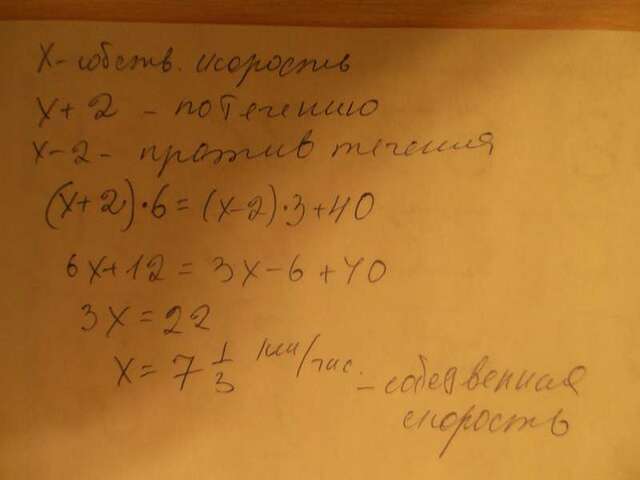 X - собств. скорость
X + 2 - по течению
X - 2 - против течения
(X+2)·6 = (X-2)·3+40
6X+12 = 3X-6+40
3X = 22
X = 7 1/3 км/час. - собственная
скорость